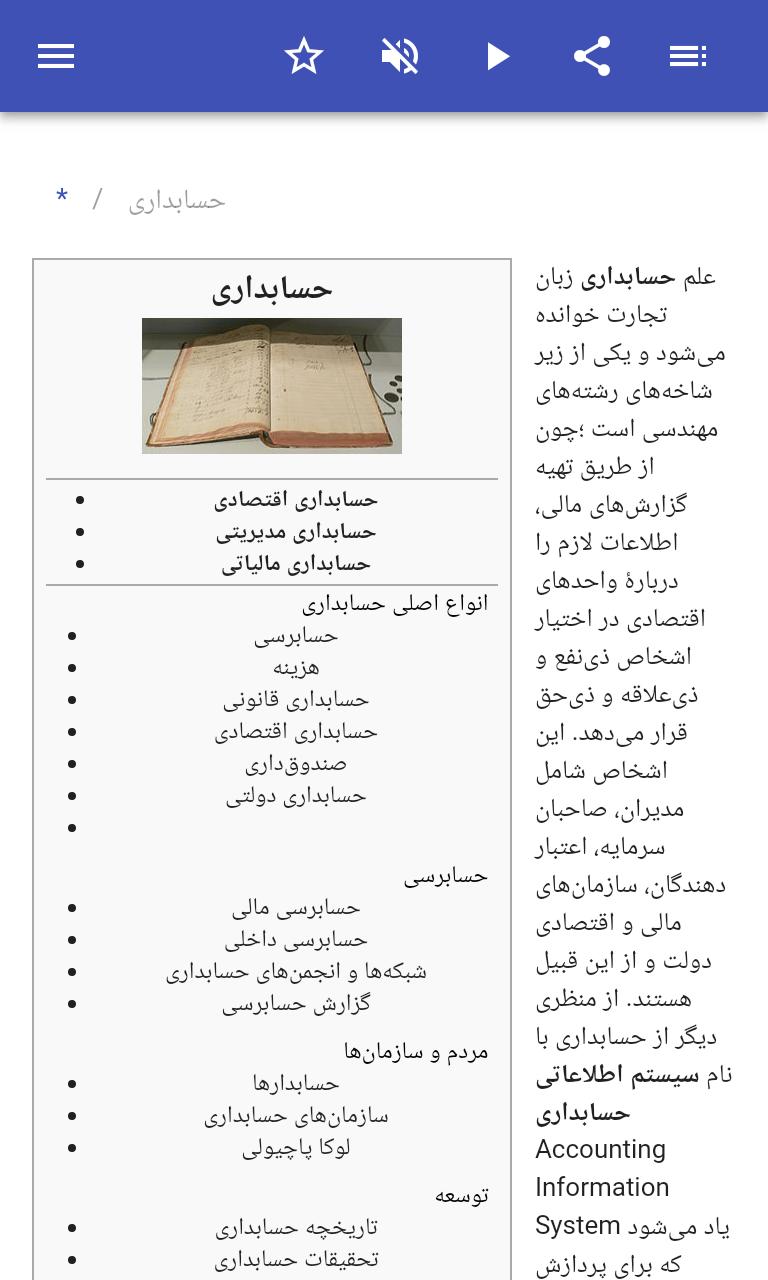 * / حسابداری
علم حسابداری زبان
تجارت خوانده
می‌شود و یکی از زیر
شاخه‌های رشته‌های
مهندسی است ؛چون
از طریق تهیه
گزارش‌های مالی،
اطلاعات لازم را
دربارهٔ واحدهای
اقتصادی در اختیار
اشخاص ذی‌نفع و
ذی‌علاقه و ذی‌حق
قرار می‌دهد. این
اشخاص شامل
مدیران، صاحبان
سرمایه، اعتبار
دهندگان، سازمان‌های
مالی و اقتصادی
دولت و از این قبیل
هستند. از منظری
دیگر از حسابداری با
نام سیستم اطلاعاتی
حسابداری
Accounting
Information
System یاد می‌شود
که برای پردازش
حسابداری
حسابداری اقتصادی
حسابداری مدیریتی
حسابداری مالیاتی
انواع اصلی حسابداری
حسابرسی
هزینه
حسابداری قانونی
حسابداری اقتصادی
صندوق‌داری
حسابداری دولتی
حسابرسی
حسابرسی مالی
حسابرسی داخلی
شبکه‌ها و انجمن‌های حسابداری
گزارش حسابرسی
مردم و سازمان‌ها
حسابدارها
سازمان‌های حسابداری
لوکا پاچیولی
توسعه
تاریخچه حسابداری
تحقیقات حسابداری